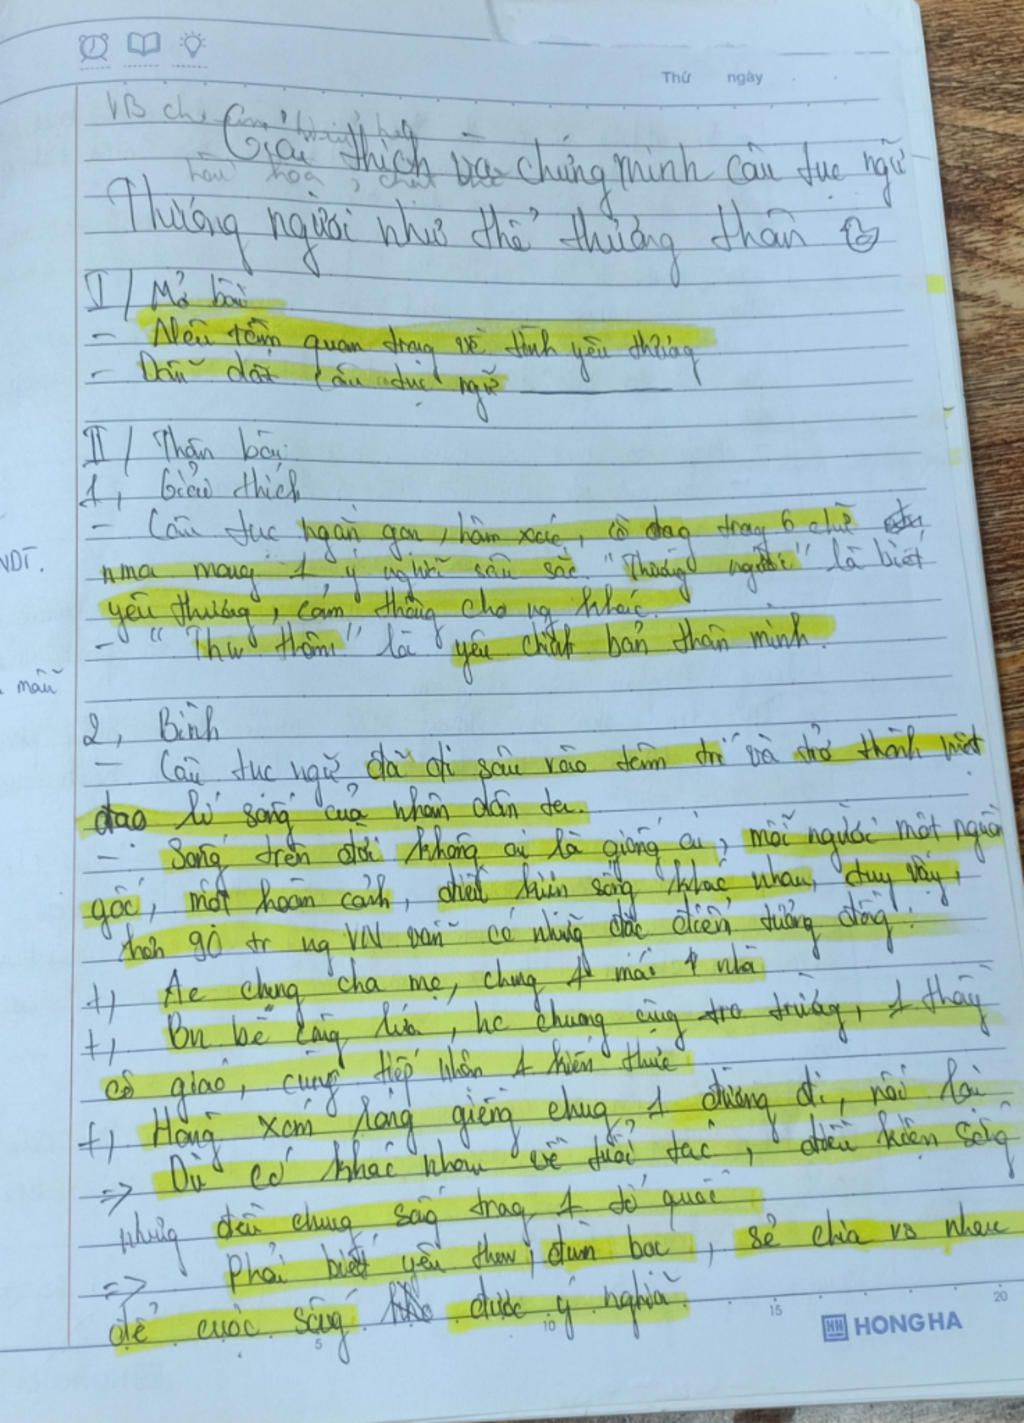 Thứ ngày
VB
Giải thích và chứng minh câu tục ngữ
Thương người như thể thương thân
I / Mở bài
- Nêu tầm quan trọng về tình yêu thương
- Dẫn dắt câu tục ngữ
II / Thân bài:
1, Giải thích
- Câu tục ngắn gọn, hàm xúc, cô đọng trong 6 chữ
nma mang 1 ý nghĩa sâu sắc. "Thương người" là biết
yêu thương, cảm thông cho ng khác.
- "Thw thân" là yêu chính bản thân mình.
NDT.
mẫu
2, Bình
- Câu tục ngữ đã đi sâu vào tâm trí và trở thành một
đạo lí sống của nhân dân ta.
- Sống trên đời không ai là giống ai, mỗi người một nguồn
gốc, một hoàn cảnh, điều kiện sống khác nhau, tuy vậy,
tr ng VN vẫn có những đặc điểm tương đồng:
+) Ae chung cha mẹ, chung 1 mái nhà
+) Bn bè cùng lứa, hc chung cùng trường, 1 thầy
cô giáo, cùng tiếp nhận 1 kiến thức
+) Hàng xóm láng giềng chug 1 đường đi, nối lại
=> Dù có khác nhau về tuổi tác, điều kiện sống
nhưng đều chung sống trong 1 tổ quốc
=> Phải biết yêu thw, đùm bọc, sẻ chia vs nhau
để cuộc sống được ý nghĩa.
5 10 15 20
HH HONG HA